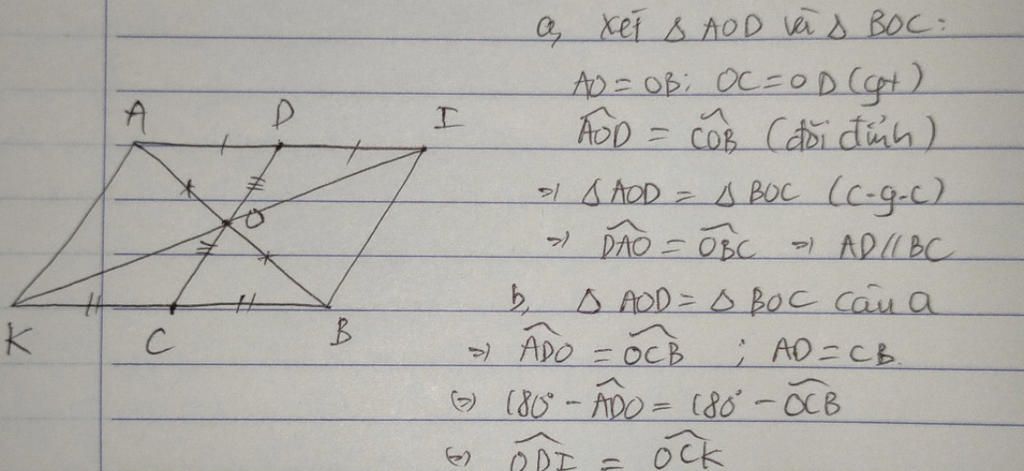 a, Xét Δ AOD và Δ BOC:
AO = OB; OC = OD (gt)
A D I
∠AOD = ∠COB (đối đỉnh)
=> Δ AOD = Δ BOC (c-g-c)
O
=> ∠DAO = ∠OBC => AD // BC
b, Δ AOD = Δ BOC câu a
K C B
=> ∠ADO = ∠OCB ; AD = CB.
(=) 180° - ∠ADO = 180° - ∠OCB
(=) ∠ODI = ∠OCK